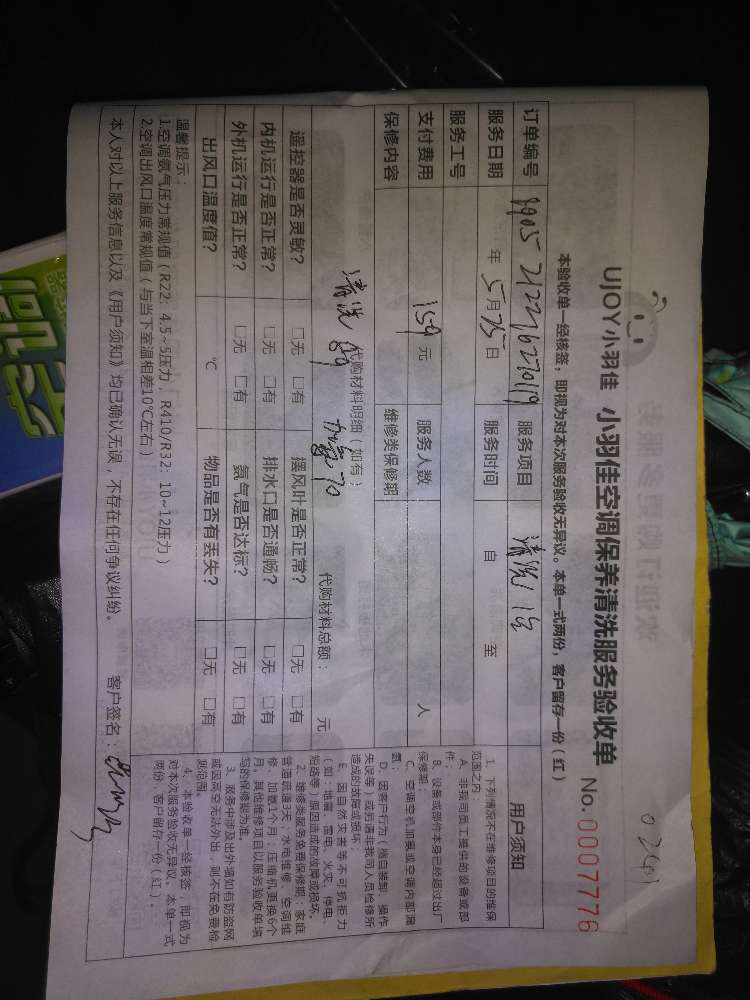 UJOY小羽佳 小羽佳空调保养清洗服务验收单
No. 00077776
本验收单一经核签，即视为对本次服务验收无异议。本单一式两份，客户留存一份（红）
订单编号 服务项目 清洗1台
服务日期 年5月25日 服务时间 自 至
服务工号
支付费用 159元 服务人数 人
保修内容 维修类保修期
代购材料明细（如有）
清洗89 加氨70
代购材料总额： 元
遥控器是否灵敏？ □无 □有 摆风叶是否正常？ □无 □有
内机运行是否正常？ □无 □有 排水口是否通畅？ □无 □有
外机运行是否正常？ □无 □有 氨气是否达标？ □无 □有
出风口温度值？ ℃ 物品是否有丢失？ □无 □有
温馨提示：
1.空调氨气压力常规值（R22：4.5~5压力，R410/R32：10~12压力）
2.空调出风口温度常规值（与当下室温相差10℃左右）
本人对以上服务信息以及《用户须知》均已确认无误，不存在任何争议纠纷。 客户签名：
用户须知
1、下列情况不在维修项目的维保
范围之内
A、非我司员工提供的设备或部
件；
B、设备或部件本身已经超过出厂
保修期；
C、空调空机加氨或空调内部漏
氨；
D、因客户行为（擅自装卸、操作
失误等）或另请非我司人员检修所
造成的故障或损坏；
E、因自然灾害等不可抗拒力
（如：地震、雷电、火灾、停电、
短路等）原因造成的故障或损坏。
2、维修类服务免费保修期：家庭
管道疏通3天；水电维修、空调维
修、加氨1个月；压缩机更换6个
月。其他维修项目以服务验收单填
写的保修期为准。
3、服务中涉及出外墙如有防盗网
或因高空无法外出，则不在免费检
测范围。
4、本验收单一经核签，即视为
对本次服务验收无异议。本单一式
两份，客户留存一份（红）。